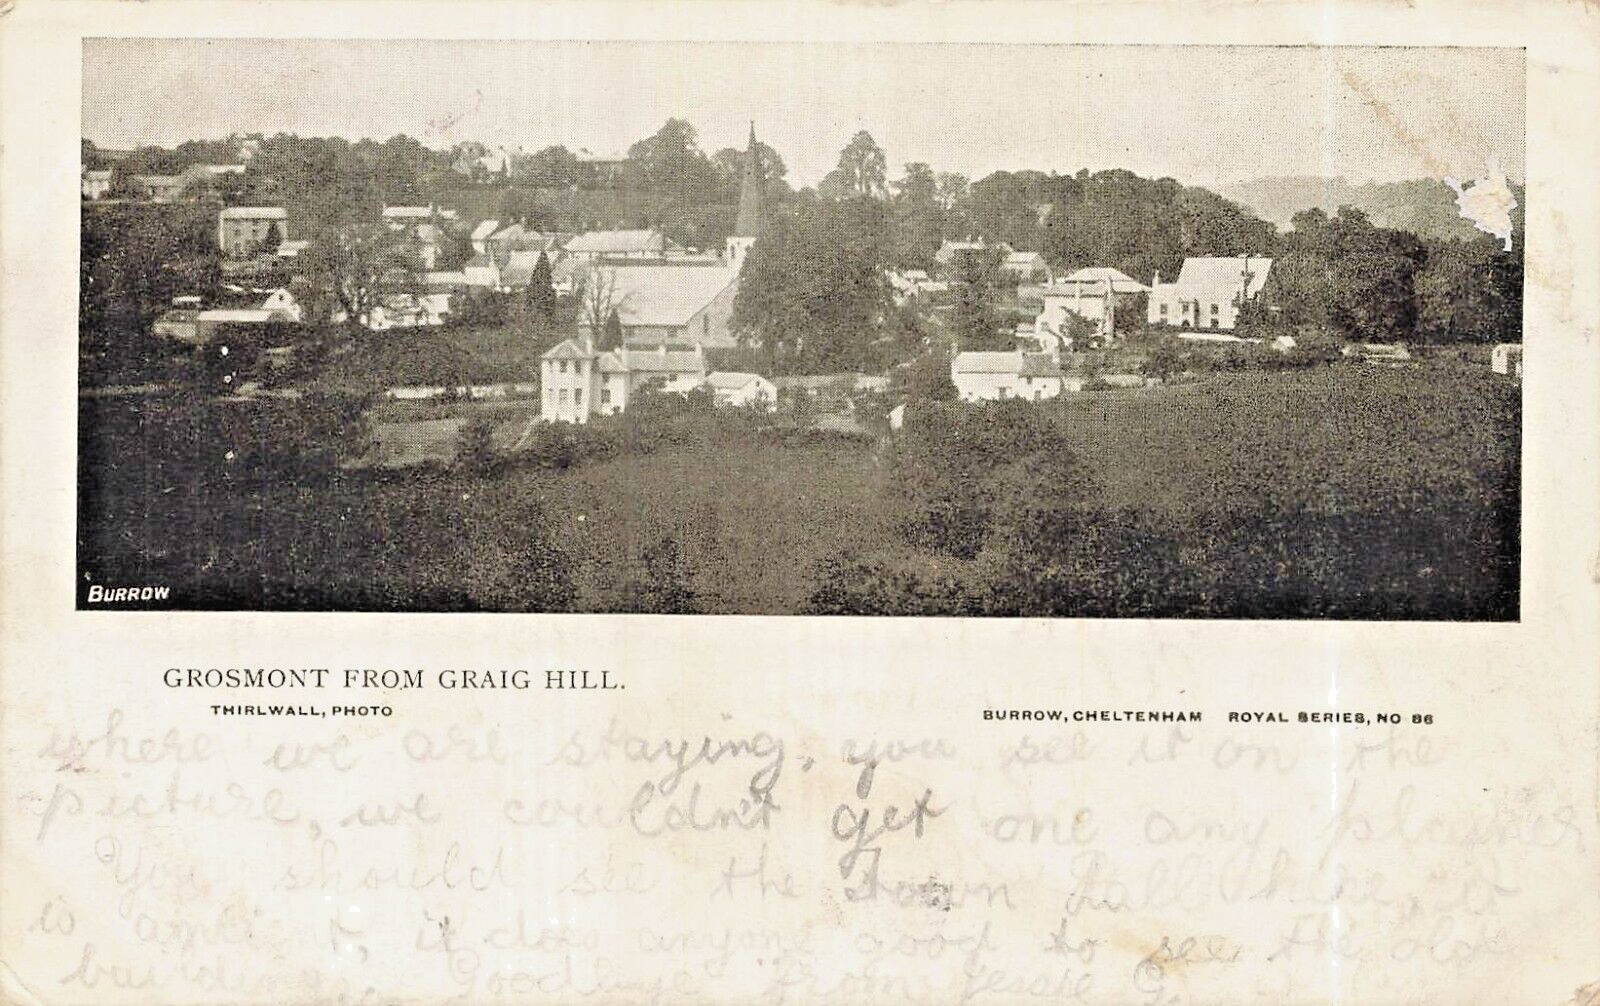 BURROW
GROSMONT FROM GRAIG HILL.
THIRLWALL, PHOTO
BURROW, CHELTENHAM ROYAL SERIES, NO 86
where we are staying, you see it on the
picture, we couldn't get one any plainer
You should see the town hall here, it
is ancient, it does anyone good to see the olde
building. Goodbye from Jessie G.